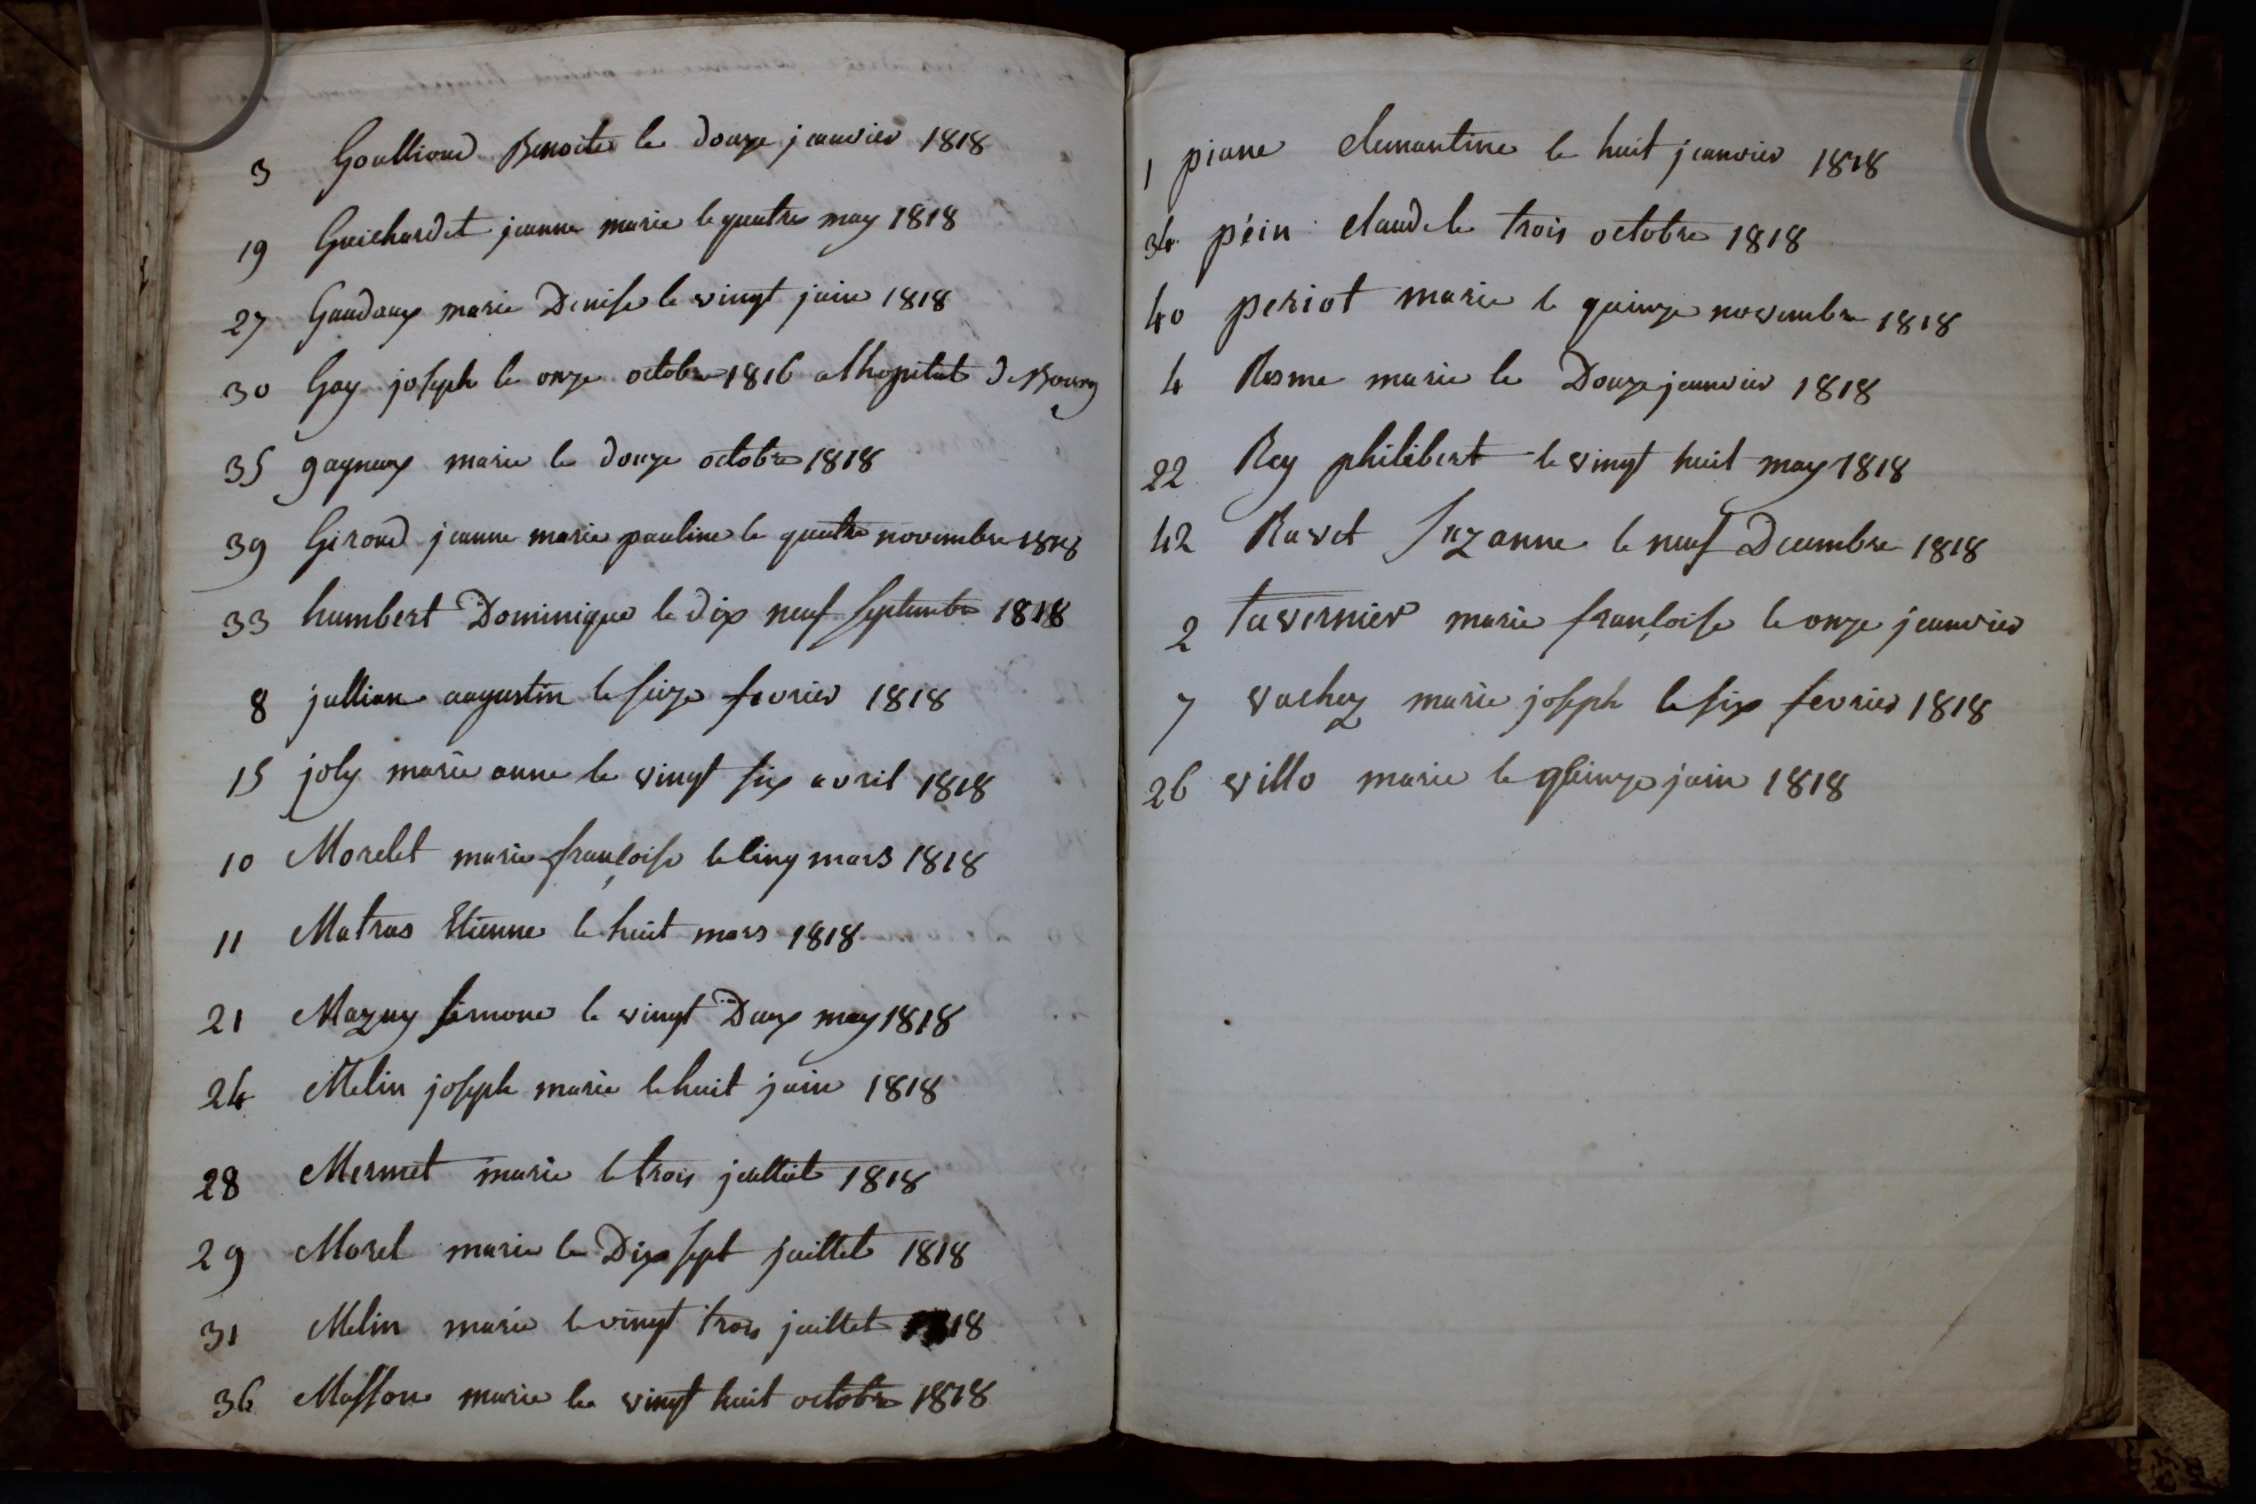 3 Goullioud Benoite le douze janvier 1818
19 Guichardet jeanne marie le quatre may 1818
27 Gaudoux marie Denise le vingt juin 1818
30 Gay joseph le onze octobre 1816 a lhopital de Bourg
35 gagneux marie le douze octobre 1818
39 Giroud jeanne marie pauline le quatre novembre 1818
33 humbert Dominique le dix neuf septembre 1818
8 jullian augustin le seize fevrier 1818
15 joly marie anne le vingt six avril 1818
10 Morelet marie françoise le cinq mars 1818
11 Matras Etienne le huit mars 1818
21 Mazuy simone le vingt Deux may 1818
24 Melin joseph marie le huit juin 1818
28 Mermet marie le trois juillet 1818
29 Morel marie le Dix sept juillet 1818
31 Melin marie le vingt trois juillet 1818
36 Masson marie le vingt huit octobre 1818
1 piane clemantine le huit janvier 1818
34 péin claude le trois octobre 1818
40 periot marie le quinze novembre 1818
4 Rosme marie le Douze janvier 1818
22 Rey philibert le vingt huit may 1818
42 Ravet Suzanne le neuf Decembre 1818
2 tavernier marie françoise le onze janvier
7 vachez marie joseph le six fevrier 1818
26 villo marie le quinze juin 1818